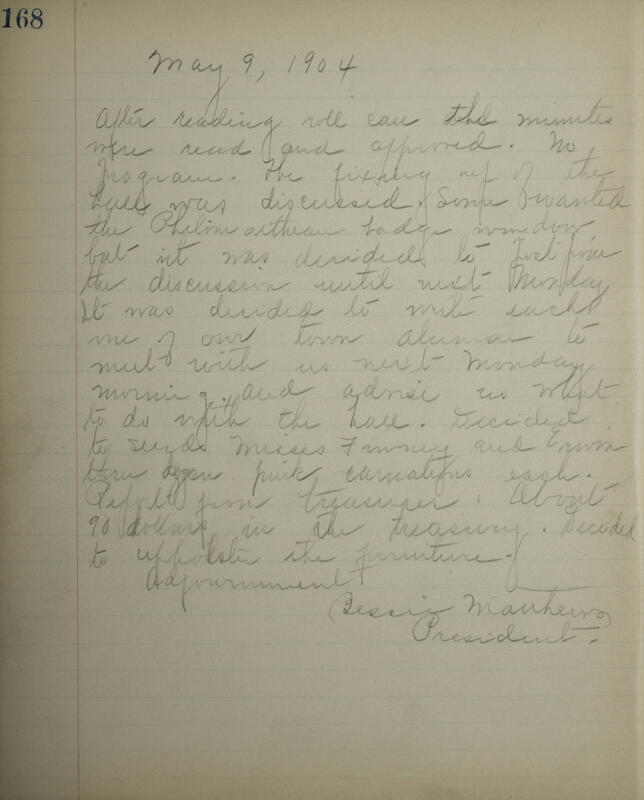 168
May 9, 1904
After reading roll call the minutes
were read and approved. No
Program. The fixing up of the
hall was discussed. Some wanted
the Philomathean badge window
but it was decided to
the discussion until next Monday.
It was decided to write each
one of our town alumae to
meet with us next Monday
morning, and advise us what
to do with the hall. Decided
to send Misses Finney and Erwin
three dozen pink carnations each.
Report from treasurer. About
90 dollars in the treasury. Decided
to uppolster the furniture.
Adjournment
Bessie Matthews
President.